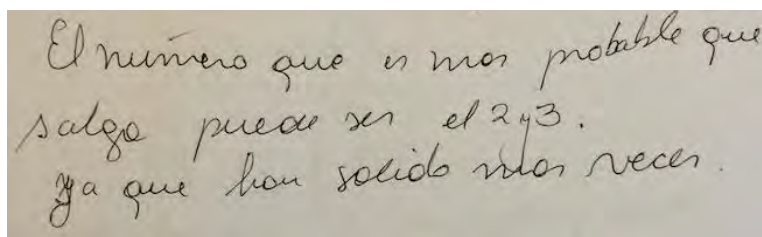 El número que es mas probable que
salga puede ser el 2 y 3.
ya que han salido mas veces.